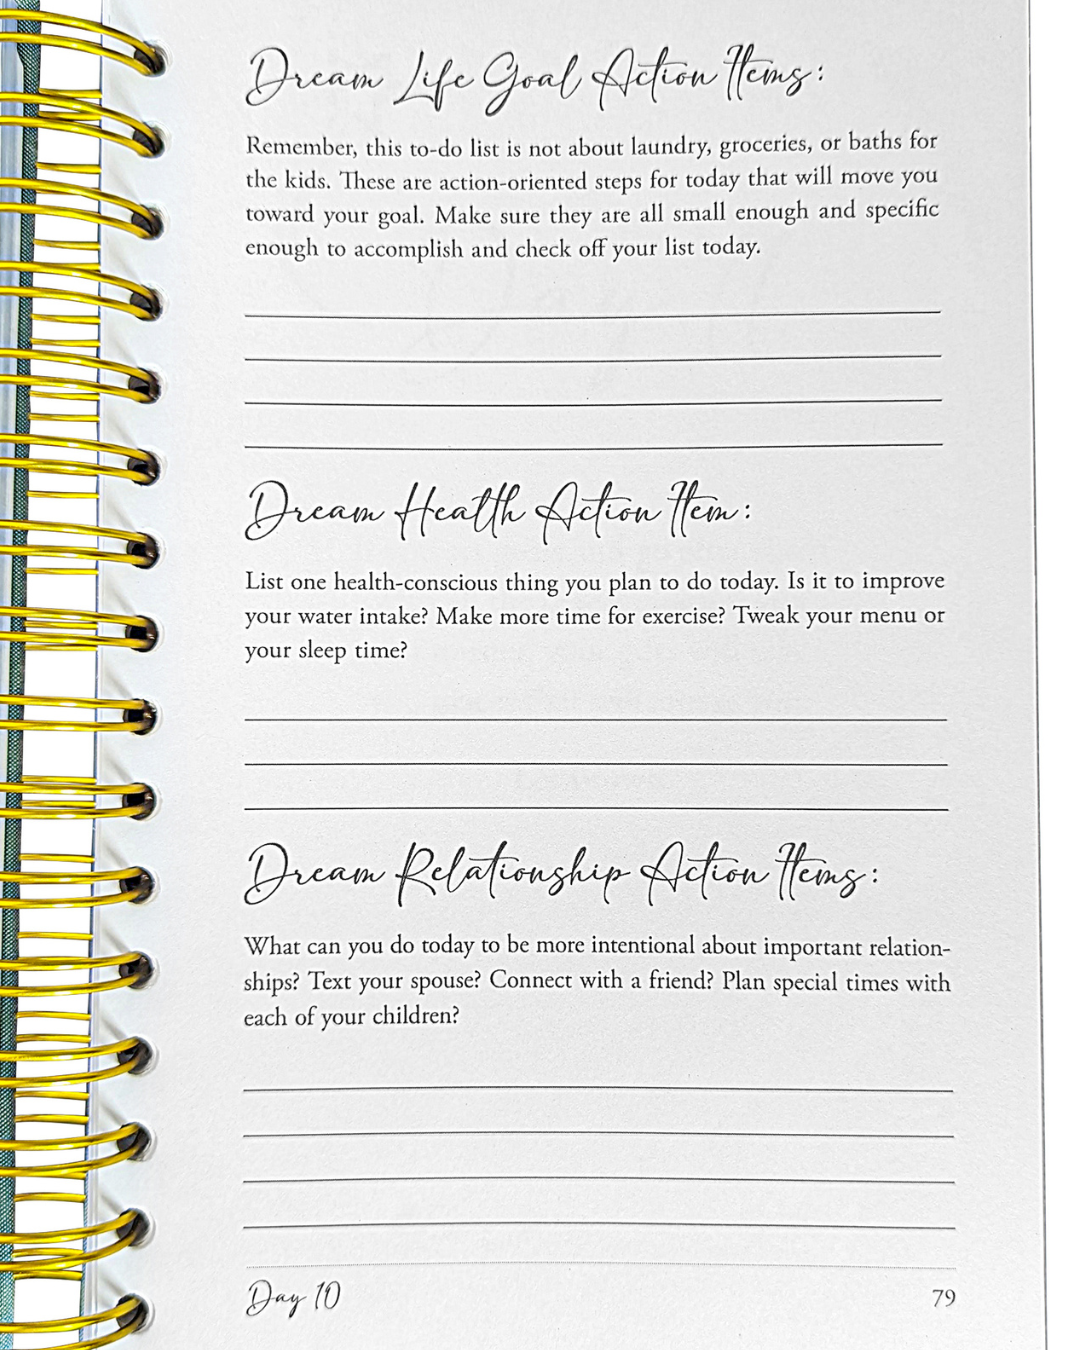 Dream Life Goal Action Items:
Remember, this to-do list is not about laundry, groceries, or baths for
the kids. These are action-oriented steps for today that will move you
toward your goal. Make sure they are all small enough and specific
enough to accomplish and check off your list today.
Dream Health Action Item:
List one health-conscious thing you plan to do today. Is it to improve
your water intake? Make more time for exercise? Tweak your menu or
your sleep time?
Dream Relationship Action Items:
What can you do today to be more intentional about important relation-
ships? Text your spouse? Connect with a friend? Plan special times with
each of your children?
Day 10 79